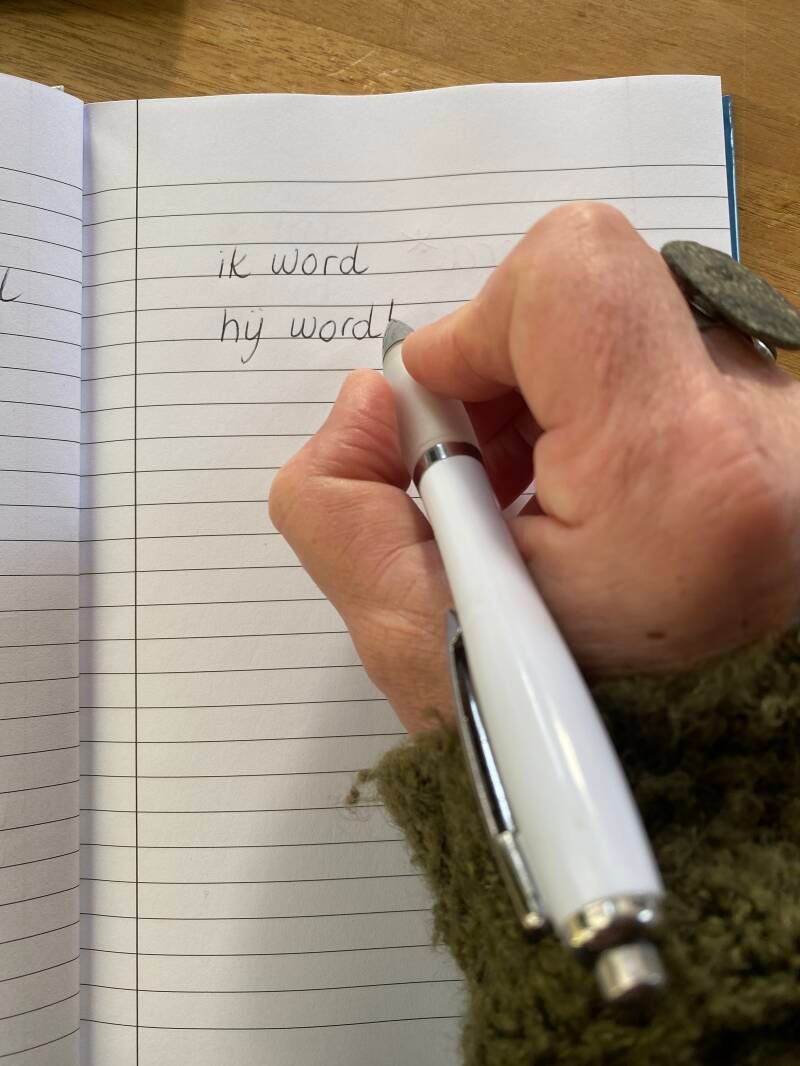 ik word
hij wordt